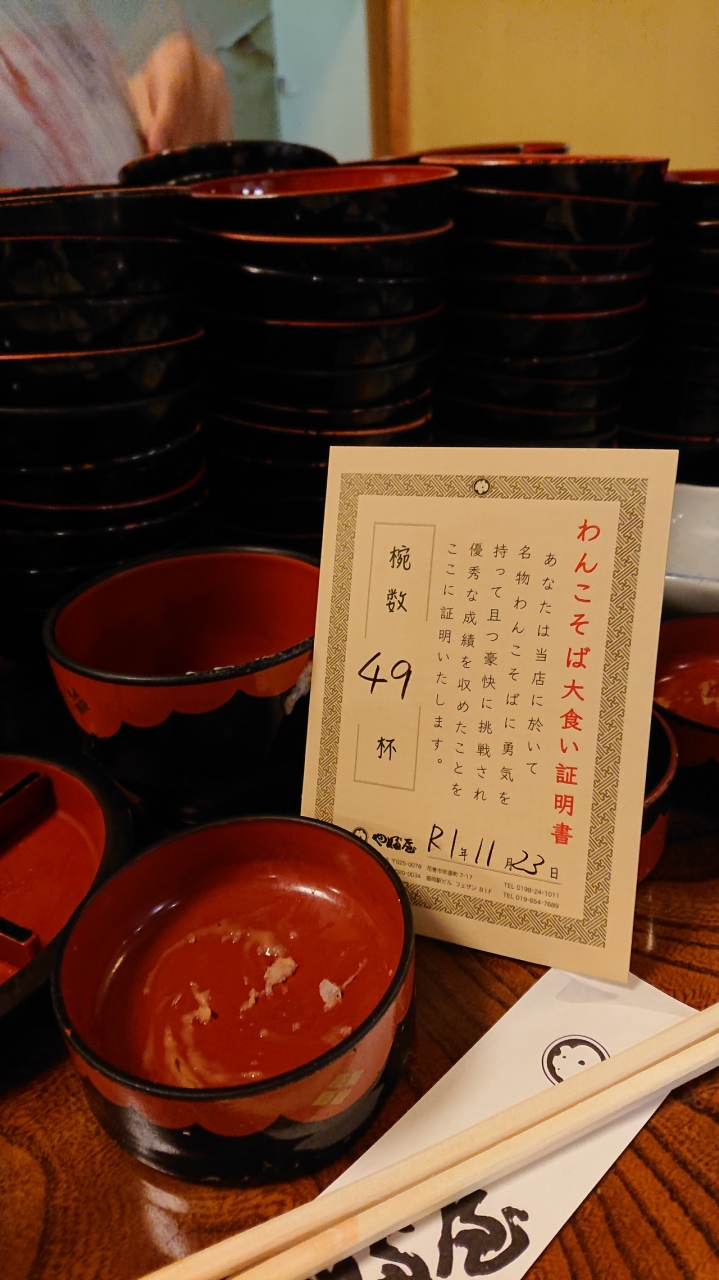 わんこそば大食い証明書
あなたは当店に於いて
名物わんこそばに勇気を
持って且つ豪快に挑戦され
優秀な成績を収めたことを
ここに証明いたします。
椀数
49
杯
R1年11月23日
やぶ屋
〒025-0078 花巻市吹張町7-17
TEL 0198-24-1011
盛岡駅ビル フェザンB1F
TEL 019-654-7689
屋